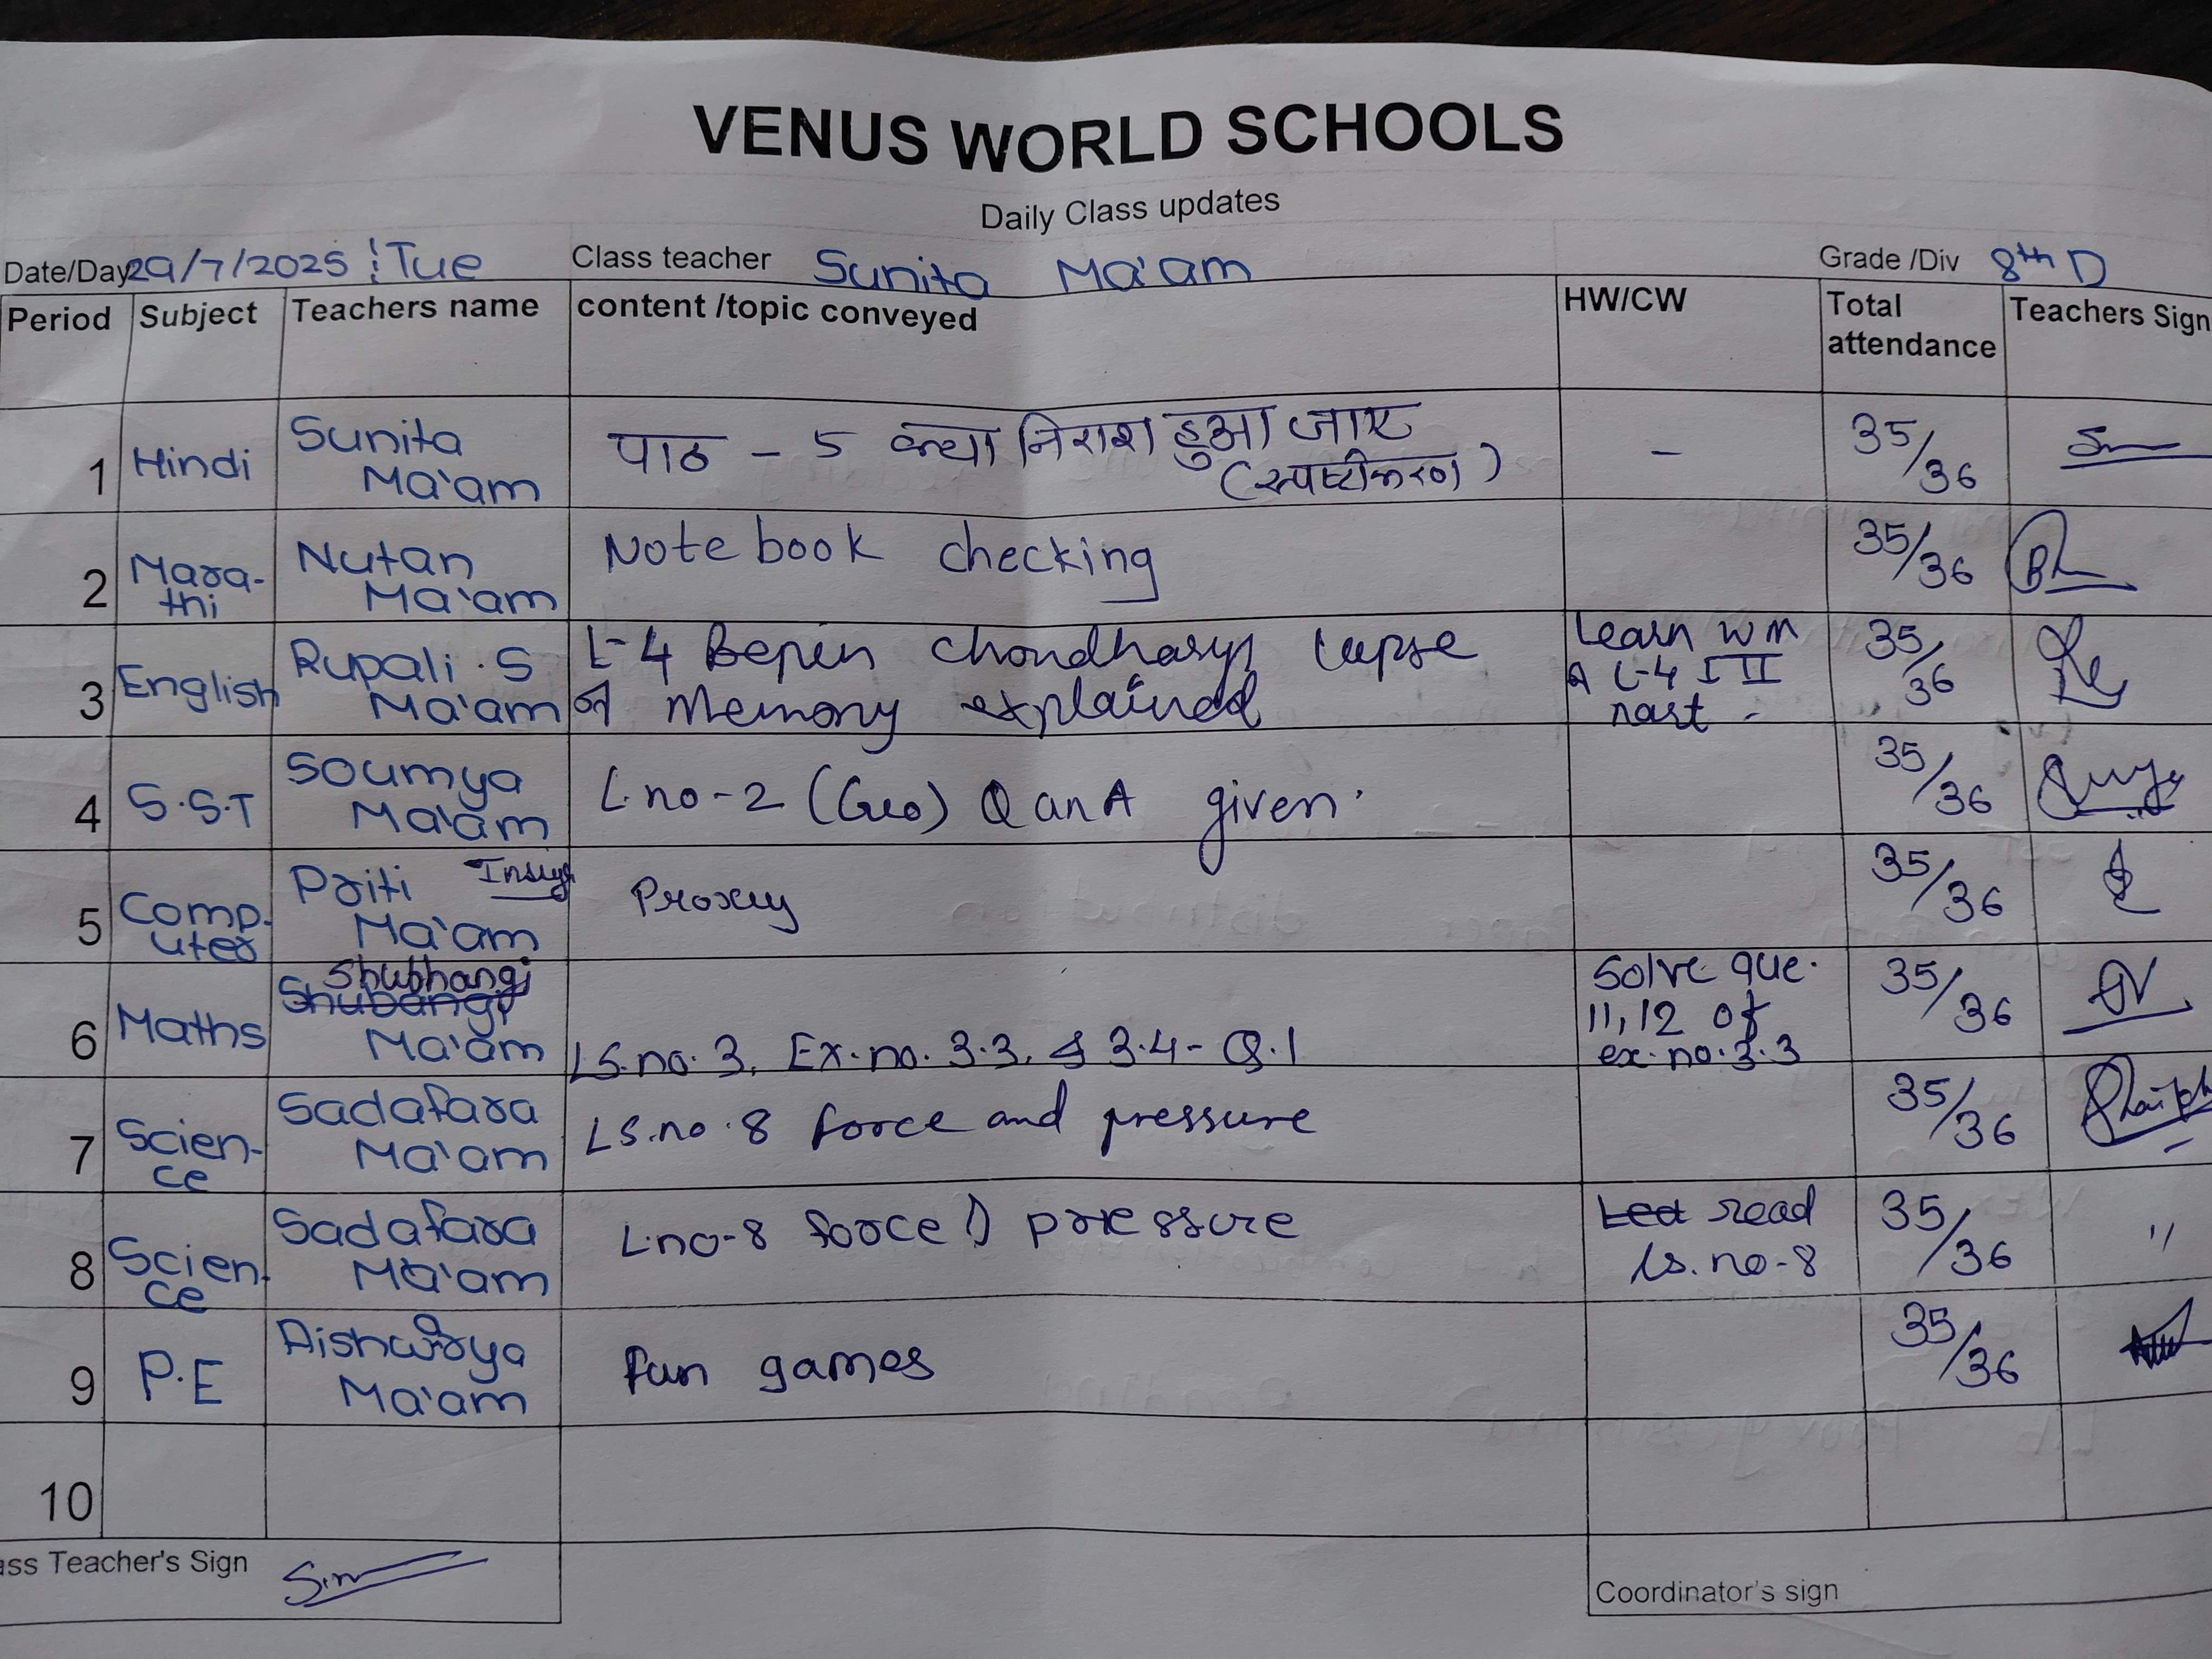 VENUS WORLD SCHOOLS
Daily Class updates
Date/Day 29/7/2025 : Tue Class teacher Sunita Ma'am Grade /Div 8th D
Period Subject Teachers name content /topic conveyed HW/CW Total attendance Teachers Sign
1 Hindi Sunita Ma'am पाठ - 5 क्या निराश हुआ जाए (स्पष्टीकरण) - 35/36
2 Mara-thi Nutan Ma'am Notebook checking 35/36
3 English Rupali .S Ma'am L-4 Bepin Choudharys lapse of Memory explained Learn WM L-4 I II 35/36
4 S.S.T Soumya Ma'am L.no-2 (Geo) Q an A given. 35/36
5 Comp-uter Priti Ma'am Proxy 35/36
6 Maths Shubangi Shubhangi Ma'am LS.no.3, Ex.no. 3.3, & 3.4- Q.1 Solve que. 11,12 of ex.no.3.3 35/36
7 Scien-ce Sadafara Ma'am LS.no.8 force and pressure 35/36
8 Scien-ce Sadafara Ma'am L.no-8 force pressure read Ls.no-8 35/36 "
9 P.E Aishwarya Ma'am fun games 35/36
10
ass Teacher's Sign
Coordinator's sign